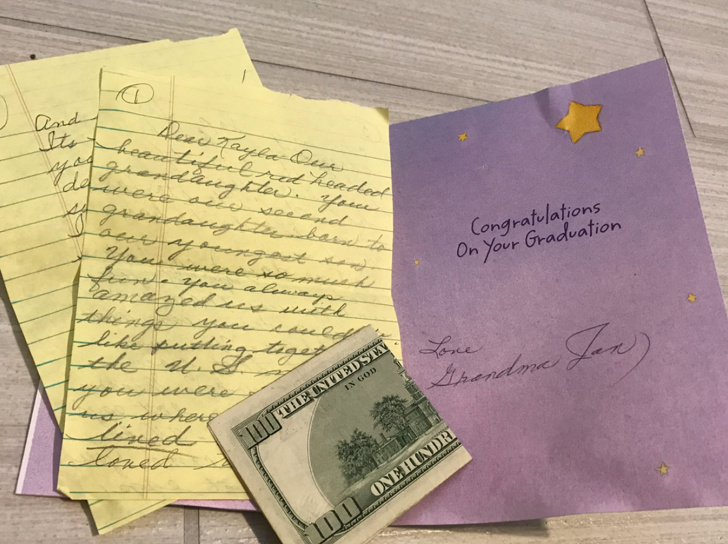 1
And
Its
you
①
Dear Kayla-Our
beautiful red headed
grandaughter. You
were our second
grandaughter born to
our youngest son
You were so much
fun. You always
amazed us with
things you could
like putting toget
the U. S
you were
us where
lived
loved
Congratulations
On Your Graduation
Love
Grandma Jan
THE UNITED STA
IN GOD
100
ONE HUNDR
100